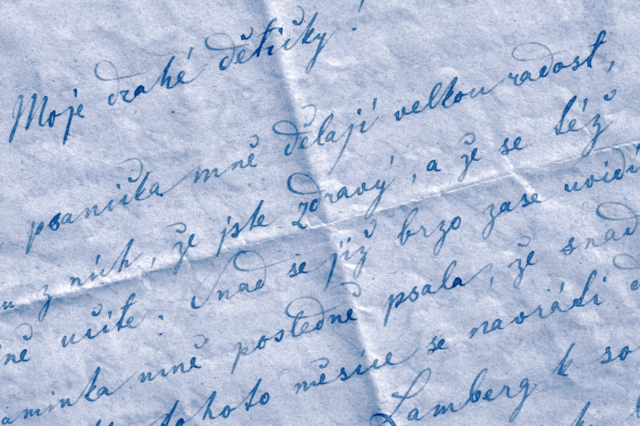 Moje drahé dětičky!
psaníčka mně dělají velkou radost,
z nich, že jste zdravý, a že se též
učíte. Snad se již brzo zase uvidí
mně posledně psala, že snad
tohoto měsíce se navrátí
Lamberg k